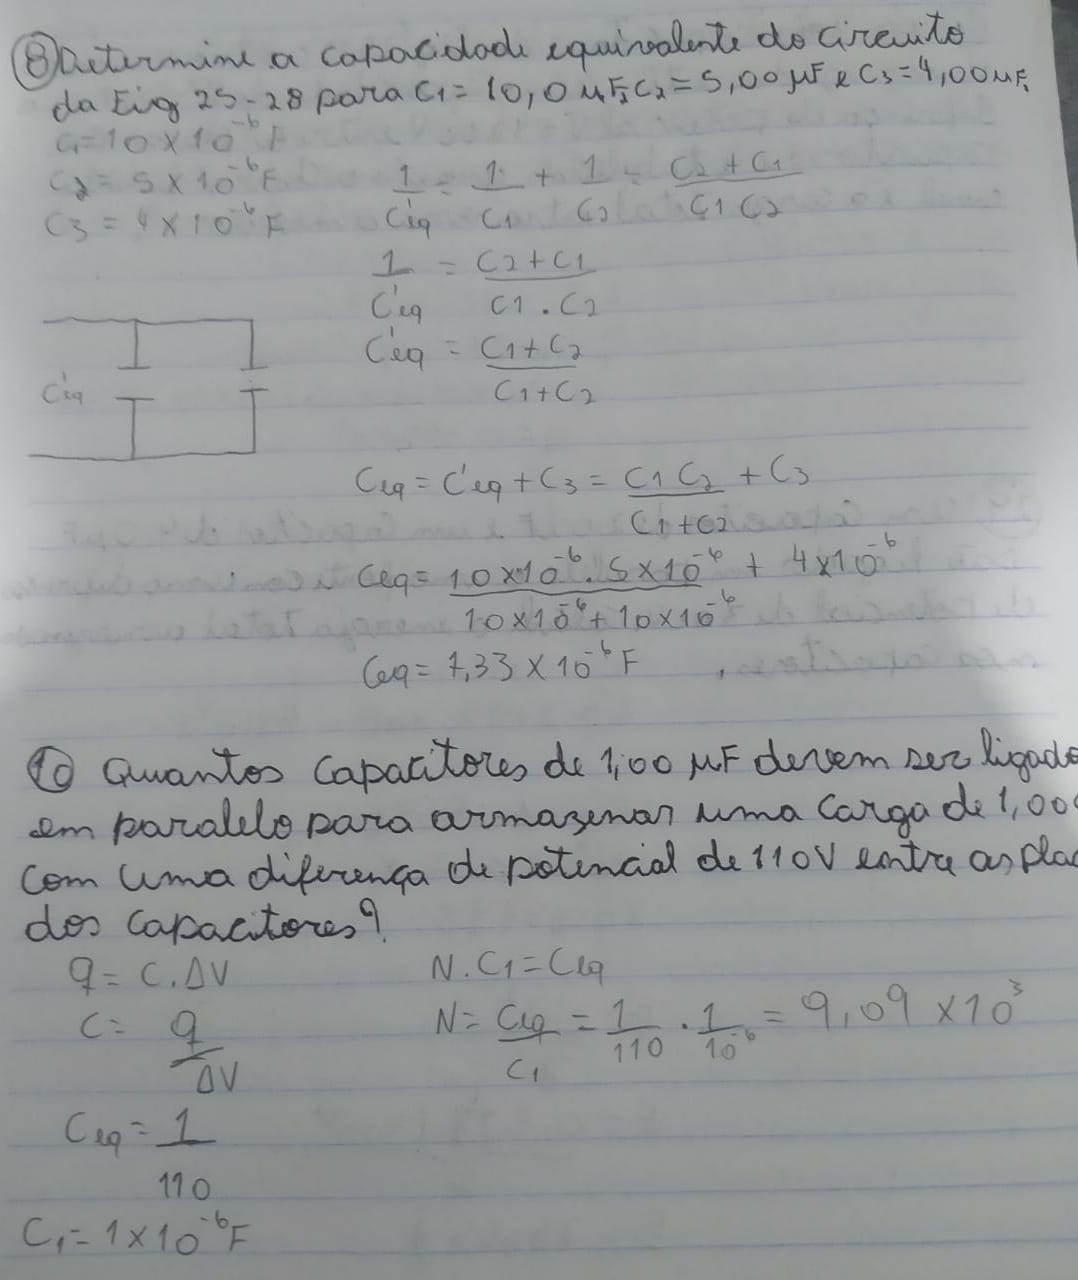 ⑧ Determine a capacidade equivalente do circuito
da Fig 25-28 para C1 = 10,0 μF, C2 = 5,00 μF e C3 = 4,00 μF.
C1=10×10⁻⁶ F
C2 = 5×10⁻⁶ F
C3 = 4×10⁻⁶ F
1/C'eq = 1/C1 + 1/C2 = C2 + C1/C1 C2
1/C'eq = C2 + C1/C1 . C2
C'eq = C1 + C2/C1 + C2
C'eq
Ceq = C'eq + C3 = C1 C2/C1 + C2 + C3
Ceq = 10×10⁻⁶ . 5×10⁻⁶/10×10⁻⁶ + 10×10⁻⁶ + 4×10⁻⁶
Ceq = 7,33 × 10⁻⁶ F
⑩ Quantos capacitores de 1,00 μF devem ser ligado
em paralelo para armazenar uma carga de 1,00
com uma diferença de potencial de 110V entre as plac
dos capacitores?
q = C.ΔV
C = q/ΔV
Ceq = 1/110
C1 = 1×10⁻⁶ F
N.C1 = Ceq
N = Ceq/C1 = 1/110 . 1/10⁻⁶ = 9,09 ×10³